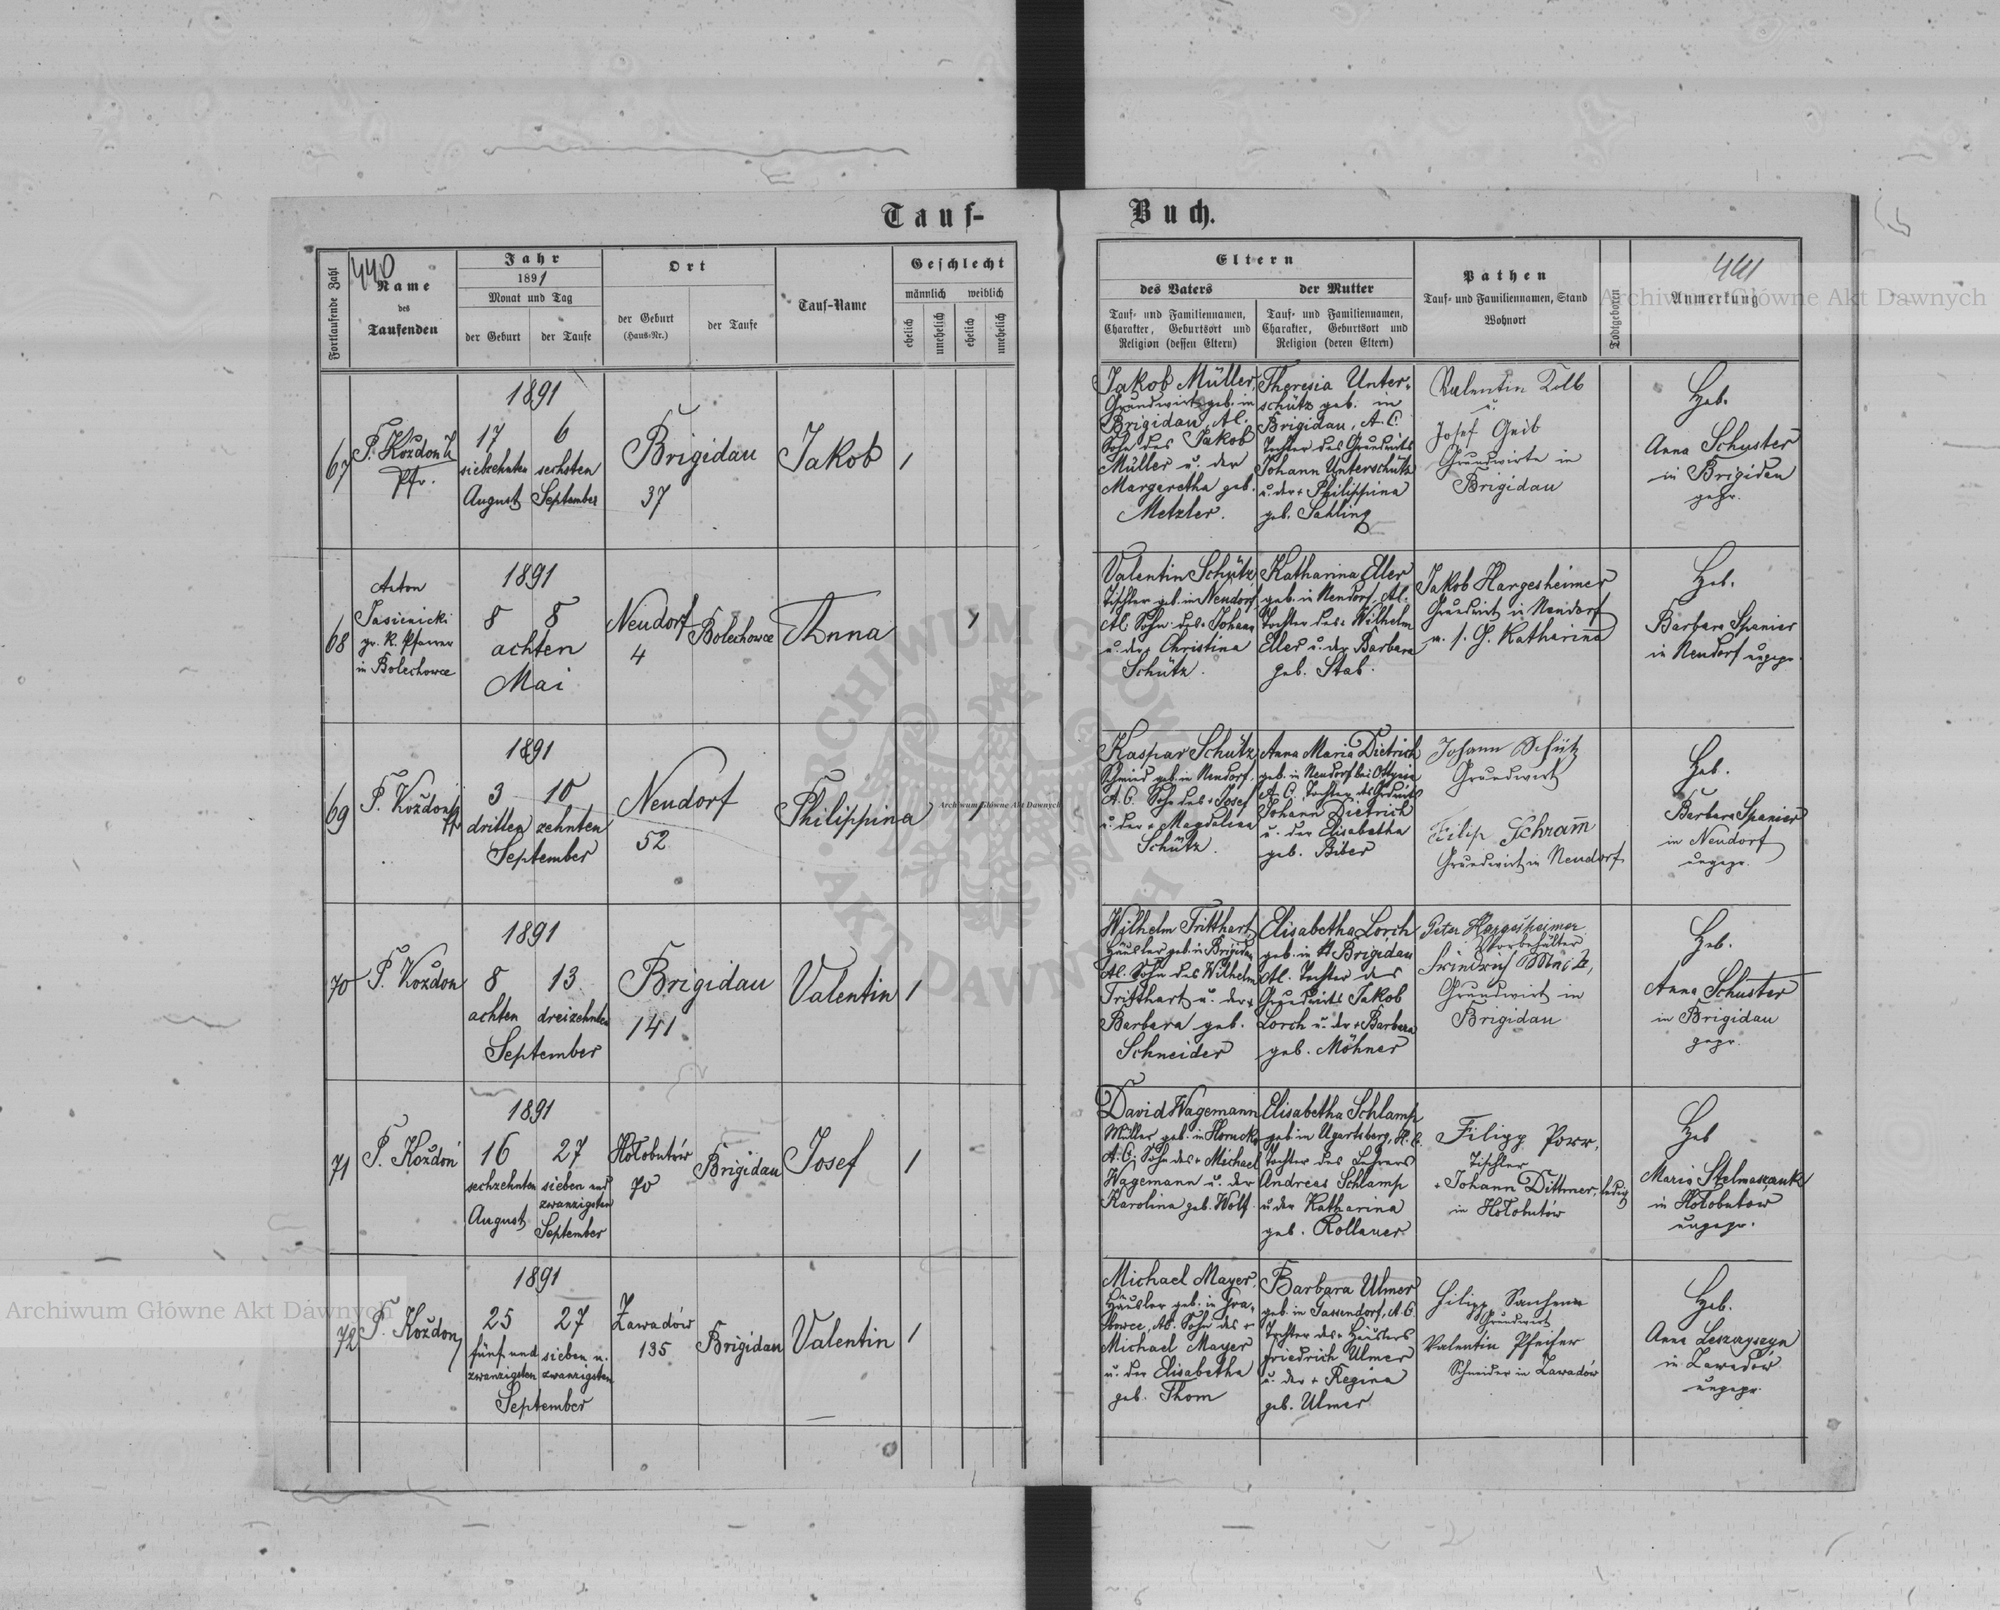 Tauf-
Buch.
440
441
Fortlaufende Zahl
Name
des
Taufenden
Jahr
1891
Monat und Tag
der Geburt
der Taufe
Ort
der Geburt
(Haus-Nr.)
der Taufe
Tauf-Name
Geschlecht
männlich
weiblich
ehelich
unehelich
ehelich
unehelich
Eltern
des Vaters
der Mutter
Tauf- und Familiennamen,
Charakter, Geburtsort und
Religion (dessen Eltern)
Tauf- und Familiennamen,
Charakter, Geburtsort und
Religion (deren Eltern)
Pathen
Tauf- und Familiennamen, Stand
Wohnort
Todtgeboren
Anmerkung
67
Pfr.
1891
17
siebzehnten
August
6
sechsten
September
Brigidau
37
Jakob
1
Jakob Müller,
Grundwirt geb. in
Brigidau, A.C.
Sohn des Jakob
Müller u. der
Margaretha geb.
Metzler.
Theresia Unter-
schütz geb. in
Brigidau, A.C.
Tochter des Grundwirts
Johann Unterschütz
u. der + Philippina
geb. Sahling
Valentin Kolb
u.
Josef Geib
Grundwirte in
Brigidau
Heb.
Anna Schuster
in Brigidau
gepr.
68
Anton
Jasienicki
gr. k. Pfarrer
in Bolechowce
1891
8
8
achten
Mai
Neudorf
4
Bolechowce
Anna
1
Valentin Schütz
Tischler geb. in Neudorf,
A.C. Sohn des + Johann
u. der + Christina
Schütz.
Katharina Eller
geb. in Neudorf, A.C.
Tochter des + Wilhelm
Eller u. der Barbara
geb. Stab.
Jakob Hargesheimer
Grundwirt in Neudorf
u. s. G. Katharina
Heb.
Barbara Spanier
in Neudorf ungepr.
69
P. Koždoń
1891
3
10
dritten
zehnten
September
Neudorf
52
Philippina
1
Kaspar Schütz
Schmied geb. in Neudorf,
A.C. Sohn des + Josef
u. der + Magdalena
Schütz.
Anna Maria Dietrich
geb. in Neudorf bei Ottynia
A.C. Tochter des Grdwirts
Johann Dietrich
u. der Elisabetha
geb. Biber
Johann Schütz
Grundwirt
Filip Schram̄
Grundwirt in Neudorf
Heb.
Barbara Spanier
in Neudorf
ungepr.
70
P. Koždon
1891
8
13
achten
dreizehnten
September
Brigidau
141
Valentin
1
Wilhelm Tritthart,
Häusler geb. in Brigidau
A.C. Sohn des Wilhelm
Tritthart u. der +
Barbara geb.
Schneider
Elisabetha Lorch
geb. in Brigidau
A.C. Tochter des
Grundwirts Jakob
Lorch u. der + Barbara
geb. Möhner
Peter Hargesheimer
Vorbehälter
Grundwirt in
Brigidau
Heb.
Anna Schuster
in Brigidau
gepr.
71
P. Koždoń
1891
16
27
sechzehnten
August
sieben und
zwanzigsten
September
Hołobutów
70
Brigidau
Josef
1
David Wagemann
Müller geb. in Horucko
A.C. Sohn des + Michael
Wagemann u. der
Karolina geb. Wolf
Elisabetha Schlamp
geb. in Ugartsberg, H.C.
Tochter des Lehrers
Andreas Schlamp
u. der Katharina
geb. Rollauer
Filipp Porr,
Tischler
Johann Dittmer, ledig
in Hołobutów
Heb
Maria Stelmaszank
in Hołobutow
ungepr.
72
P. Koždoń
1891
25
27
fünf und
zwanzigsten
sieben u.
zwanzigsten
September
Zawadów
135
Brigidau
Valentin
1
Michael Mayer,
Häusler geb. in Gra-
bowce, A.C. Sohn des +
Michael Mayer
u. der Elisabetha
geb. Thom
Barbara Ulmer
geb. in Gassendorf, A.C.
Tochter des + Häuslers
Friedrich Ulmer
u. der + Regina
geb. Ulmer
Grundwirt
Valentin Pfeifer
Schneider in Zawadów
Heb.
Anna Leszczyszyn
in Zawadów
ungepr.
Archiwum Główne Akt Dawnych
Archiwum Główne Akt Dawnych
Archiwum Główne Akt Dawnych
ARCHIWUM GŁÓWNE
AKT DAWNYCH